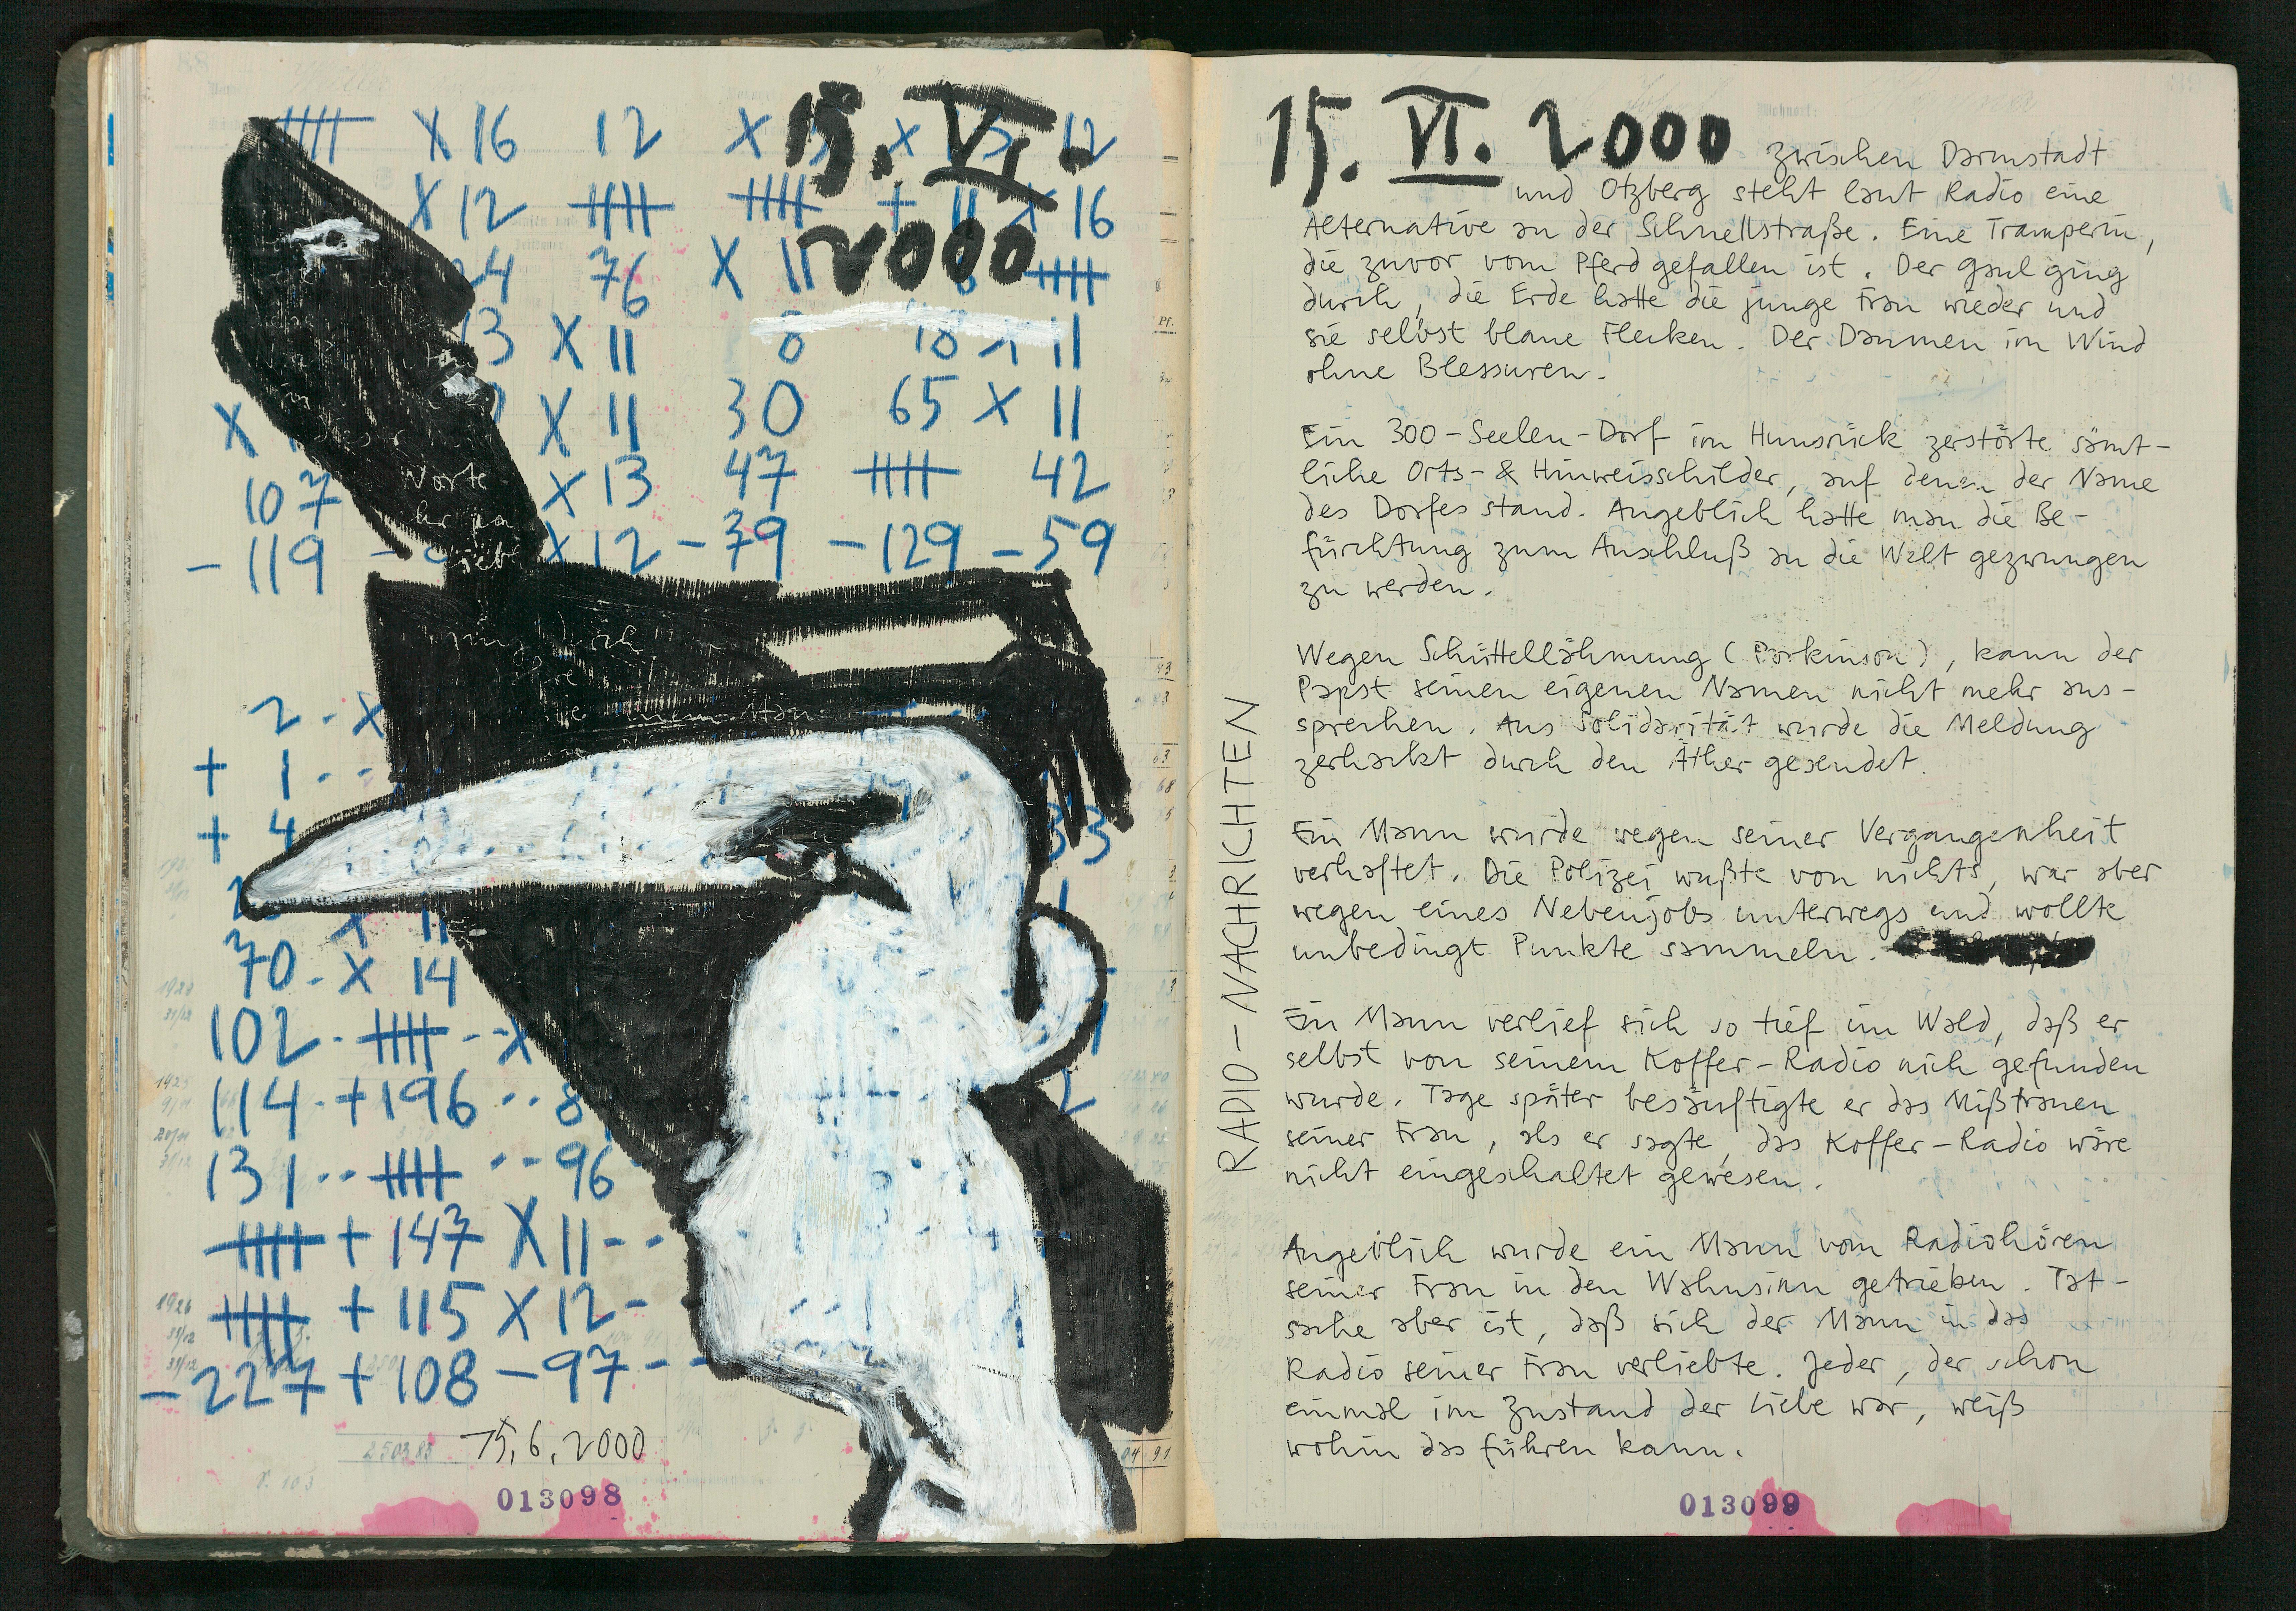 卌 X 16 12 X
15. VI.
12
X 12 卌 卌 + 11 X 16
2000
4 76 X 11 卌
13 X 11 8 18 11
X X 11 30 65 X 11
107 X 13 47 卌 42
- 119 X 12 - 39 - 129 - 59
Worte
2 - X
+ 1 - -
+ 4 33
70 - X 14
102 - 卌 - - X
114 - + 196 - - 8
131 - - 卌 - - 96
卌 + 147 X 11 - -
卌 + 115 X 12 -
- 227 + 108 - 97 - -
15.6.2000
013098
RADIO-NACHRICHTEN
15. VI. 2000 zwischen Darmstadt
und Otzberg steht laut Radio eine
Alternative an der Schnellstraße. Eine Tramperin,
die zuvor vom Pferd gefallen ist. Der Gaul ging
durch, die Erde hatte die junge Frau wieder und
sie selbst blaue Flecken. Der Daumen im Wind
ohne Blessuren.
Ein 300-Seelen-Dorf im Hunsrück zerstörte sämt-
liche Orts- & Hinweisschilder, auf denen der Name
des Dorfes stand. Angeblich hatte man die Be-
fürchtung zum Anschluß an die Welt gezwungen
zu werden.
Wegen Schüttellähmung (Parkinson), kann der
Papst seinen eigenen Namen nicht mehr aus-
sprechen. Aus Solidarität wurde die Meldung
zerhackt durch den Äther gesendet.
Ein Mann wurde wegen seiner Vergangenheit
verhaftet. Die Polizei wußte von nichts, war aber
wegen eines Nebenjobs unterwegs und wollte
unbedingt Punkte sammeln.
Ein Mann verlief sich so tief im Wald, daß er
selbst von seinem Koffer-Radio nich gefunden
wurde. Tage später besänftigte er das Mißtrauen
seiner Frau, als er sagte, das Koffer-Radio wäre
nicht eingeschaltet gewesen.
Angeblich wurde ein Mann vom Radiohören
seiner Frau in den Wahnsinn getrieben. Tat-
sache aber ist, daß sich der Mann in das
Radio seiner Frau verliebte. Jeder, der schon
einmal im Zustand der Liebe war, weiß
wohin das führen kann.
013099